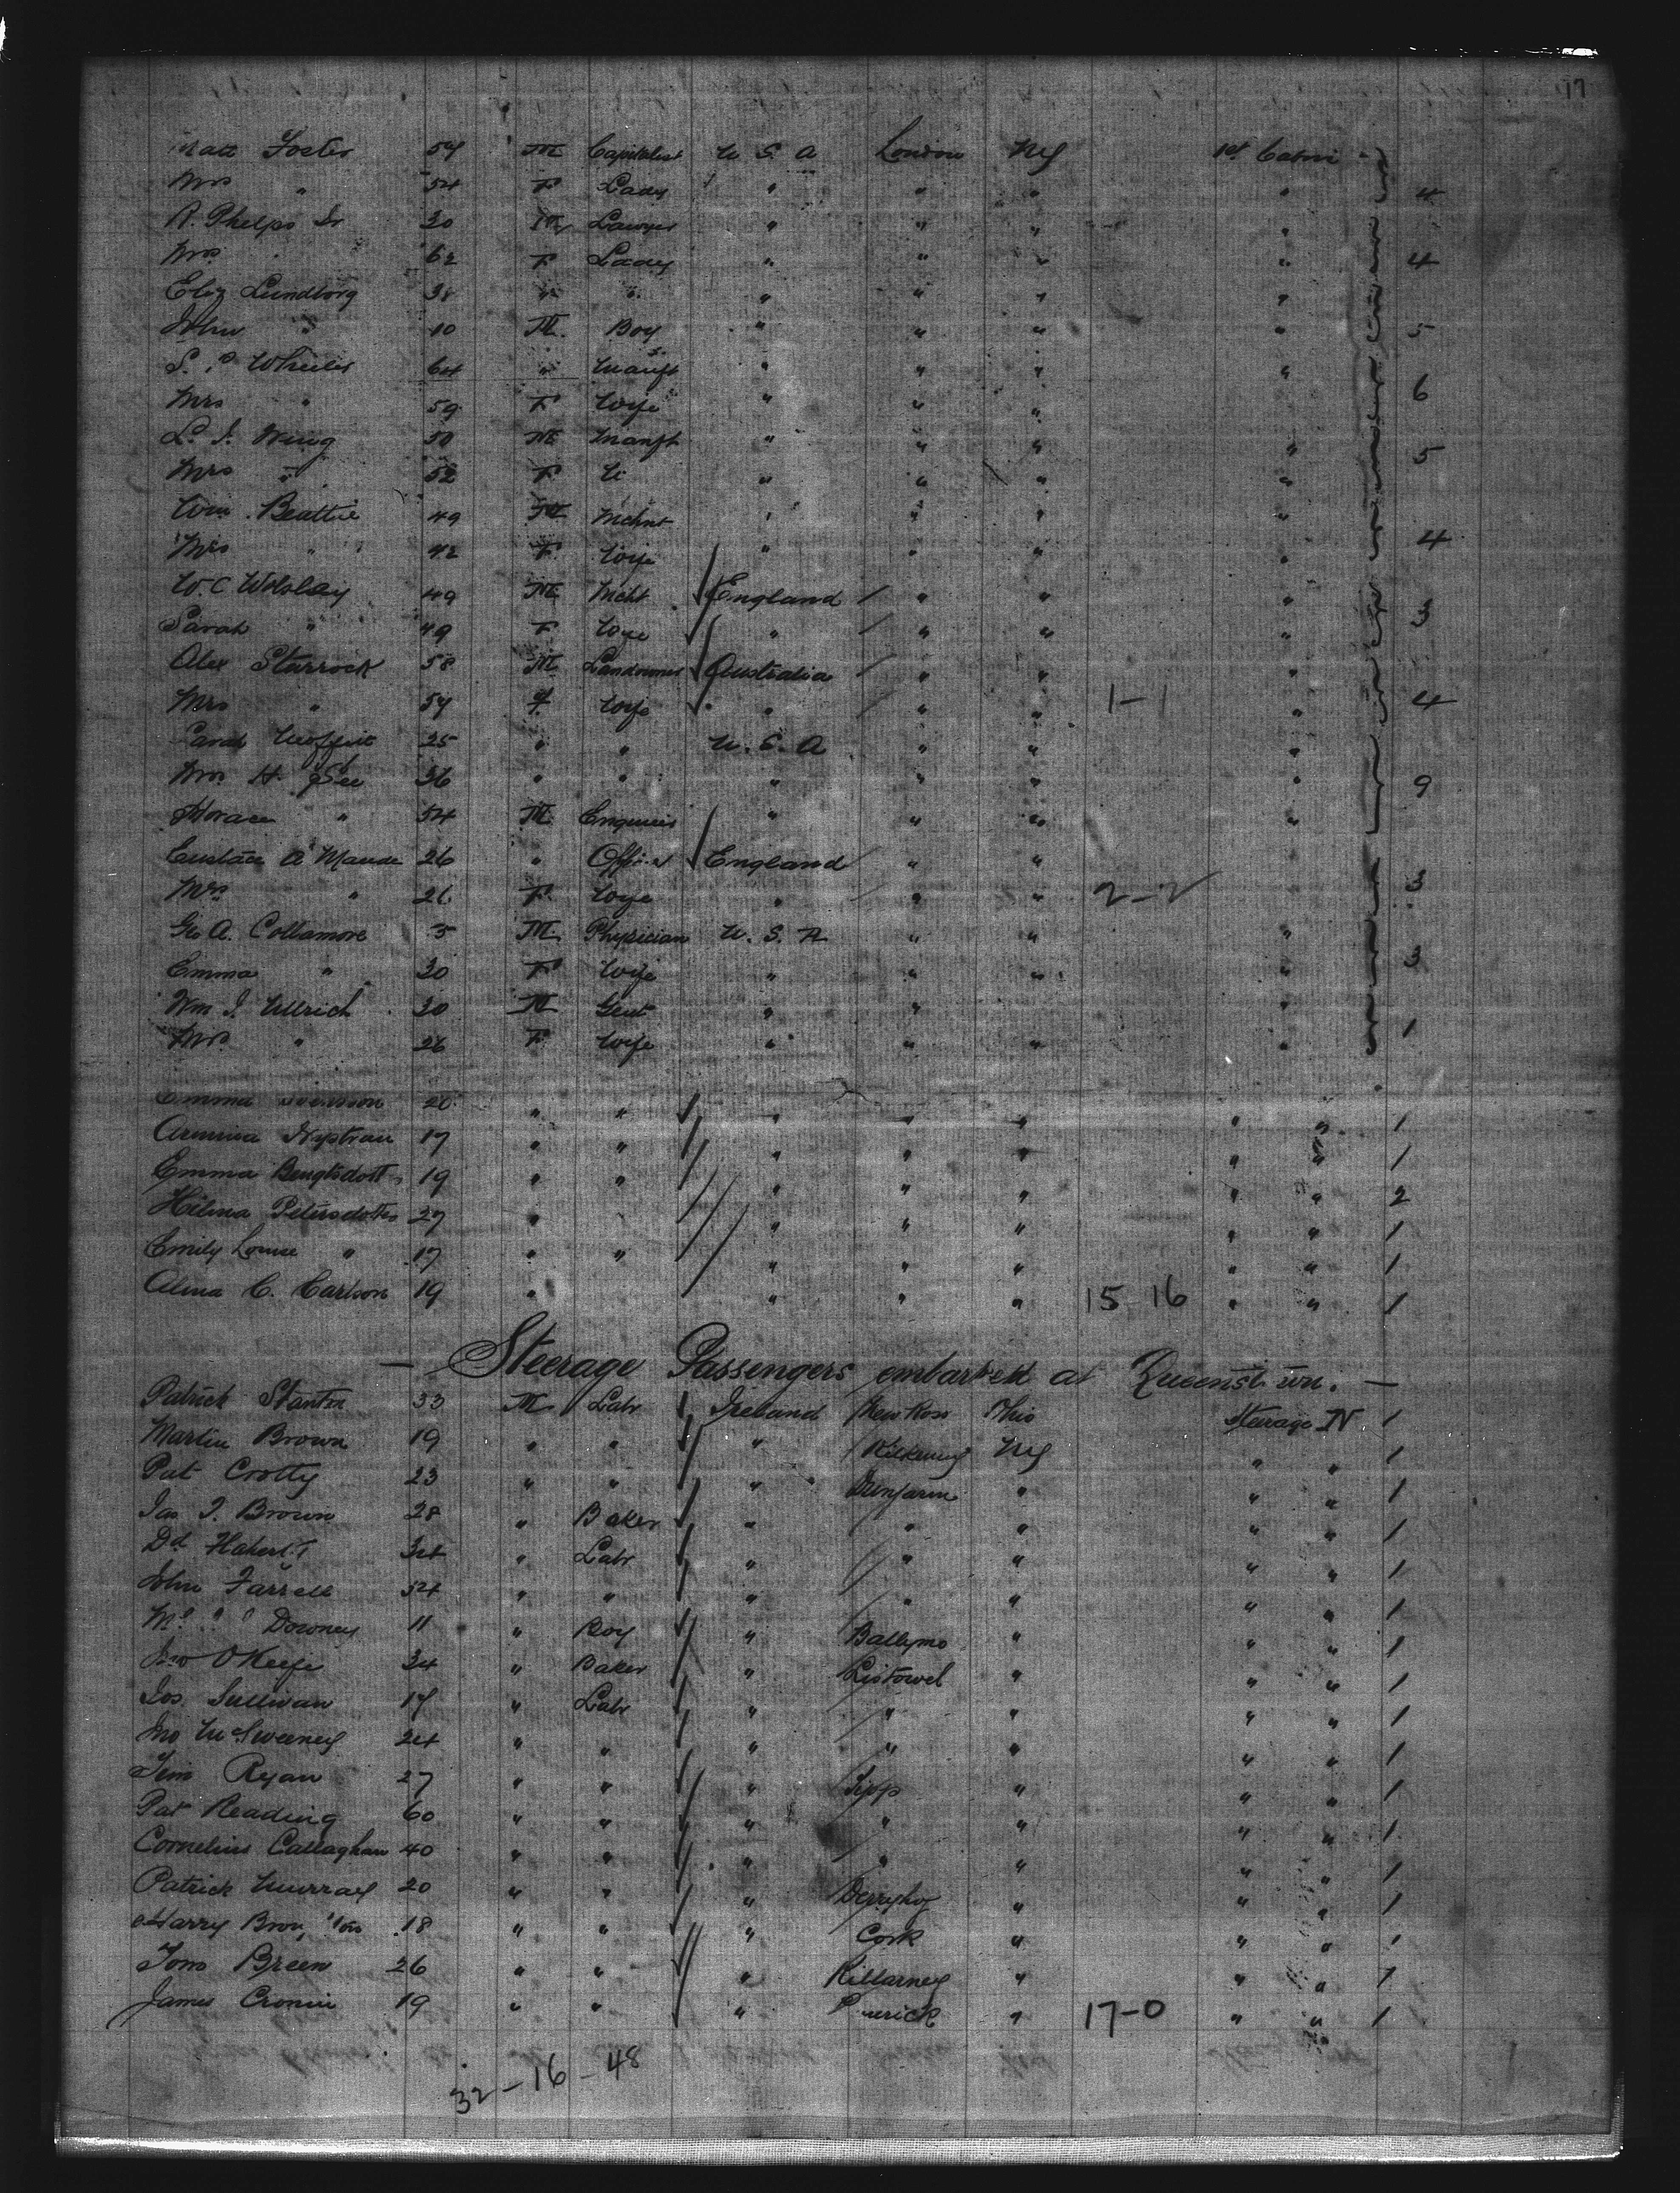 17
Foster 54 M Capitalist U S A London NY 1st Cabin
Mrs " 54 F Lady " " " " 4
R. Phelps 30 M Lawyer " " " "
Mrs 62 F Lady " " " " 4
Eliz Lundborg 38 " " " " " "
John " 10 M. Boy " " " " 5
S. Wheeler 64 " Manft " " " " 6
Mrs " 59 F Wife " " "
L. J. Wing 50 M Manft " " " " 5
Mrs " 52 F " " " "
Wm. Beattie 49 M Mchnt " " " "
Mrs " 42 F Wife " " " " 4
W. C Wolsley 49 M Mcht. England " " " 3
Sarah " 49 F Wife " " " "
Alex Starrock 58 M Landowner Australia " " "
Mrs " 54 F Wife " " " 1-1 " 4
Sarah 25 " " U. S. A " " "
Mrs H. See 36 " " " " " " 9
Horace " 54 M Engineer " " " "
Eustace A Maude 26 " England " "
Mrs " 26 F. Wife " " " 2-2 3
Geo A. Collamore 5 M. Physician U. S. A " " "
Emma " 30 F Wife " " " 3
Wm J. Ullrich 30 M Gent " " "
Mrs " 26 F Wife " " " " 1
Emma 20 " " " " " " " 1
17 " " " " " " " 1
Emma Bengtsdott 19 " " " " " " " 2
Hilma Petersdotter 27 " " " " " " 1
Emily Louise " 17 " " " " " " " 1
Alma C. Carlson 19 " " " " 15-16 " " 1
— Steerage Passengers embarked at Queenstown. —
Patrick Stanton 33 M Labr Ireland New Ross Ohio Steerage N 1
Martin Brown 19 " " " Kilkenny NY " " 1
Pat Crotty 23 " " " " " " 1
Jas. Brown 28 " Baker " " " " " 1
Dd 34 " Labr " " " " " 1
John Farrell 54 " " " " " " " 1
Downey 11 " Boy " Ballymo " " " 1
Jno O'Keefe 34 " Baker " Listowel " " " 1
Jos. Sullivan 17 " Labr " " " " " 1
Jno McSweeney 24 " " " " " " " 1
Tim Ryan 27 " " " Tipp " " " 1
Pat Reading 60 " " " " " " " 1
Cornelius Callaghan 40 " " " " " " " 1
Patrick Murray 20 " " " " " " 1
Harry 18 " " " Cork " " " 1
Tom Breen 26 " " " Killarney " " " 1
James Cronin 19 " " " " 17-0 " " 1
32-16-48